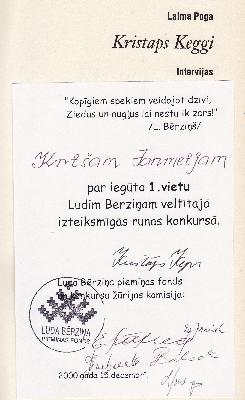 Laima Poga
Kristaps Keggi
Intervijas
"Kopīgiem spēkiem veidojot dzīvi,
Ziedus un augļus lai nestu ik zars!"
/L. Bērziņš/
par iegūto 1.vietu
Ludim Bērziņam veltītajā
izteiksmīgās runas konkursā.
Luda Bērziņa piemiņas fonds
un konkursa žūrijas komisija:
LUDA BĒRZIŅA
PIEMIŅAS FONDS
2000.gada 15.decembrī.